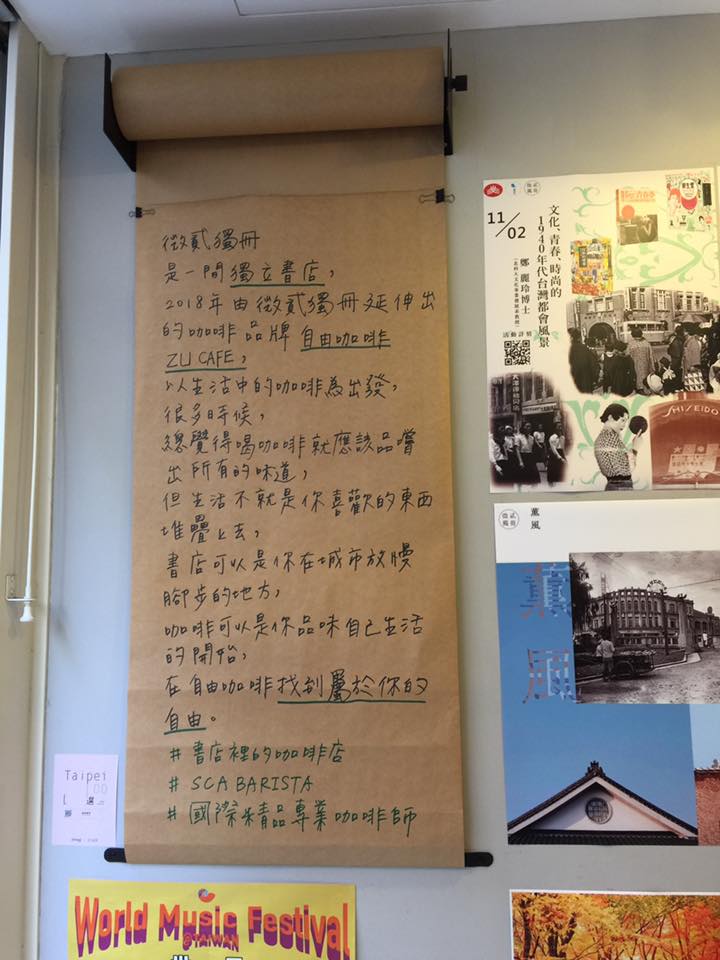 微貳獨冊
是一間獨立書店，
2018年由微貳獨冊延伸出
的咖啡品牌自由咖啡
ZU CAFE，
以生活中的咖啡為出發，
很多時候，
總覺得喝咖啡就應該品嚐
出所有的味道，
但生活不就是你喜歡的東西
堆疊上去，
書店可以是你在城市放慢
腳步的地方，
咖啡可以是你品味自己生活
的開始，
在自由咖啡找到屬於你的
自由。
# 書店裡的咖啡店
# SCA BARISTA
# 國際精品專業咖啡師
11/02
文化、青春、時尚的
1940年代台灣都會風景
鄭麗玲博士
活動詳情
SHISEIDO
薰風
薰風
Taipei
選
World Music Festival
@TAIWAN